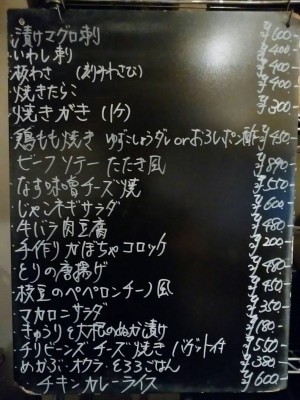 漬けマグロ刺 ¥600-
いわし刺 ¥400-
板わさ (刻みわさび) ¥400-
焼きたらこ ¥400-
焼きがき (1ヶ) ¥300-
鶏もも焼き ゆずしょうダレ or おろしポン酢 ¥450
ビーフソテー たたき風 ¥890-
なす味噌チーズ焼 ¥550-
じゃこネギサラダ ¥600-
牛バラ肉豆腐 ¥480
手作りかぼちゃコロッケ ¥200-
とりの唐揚げ ¥480
枝豆のペペロンチーノ風 ¥450-
マカロニサラダ ¥350-
きゅうりと大根のぬか漬け ¥180-
チリビーンズ チーズ焼き バゲット付 ¥550-
めかぶ・オクラ・とろろごはん ¥380-
チキンカレーライス ¥600-